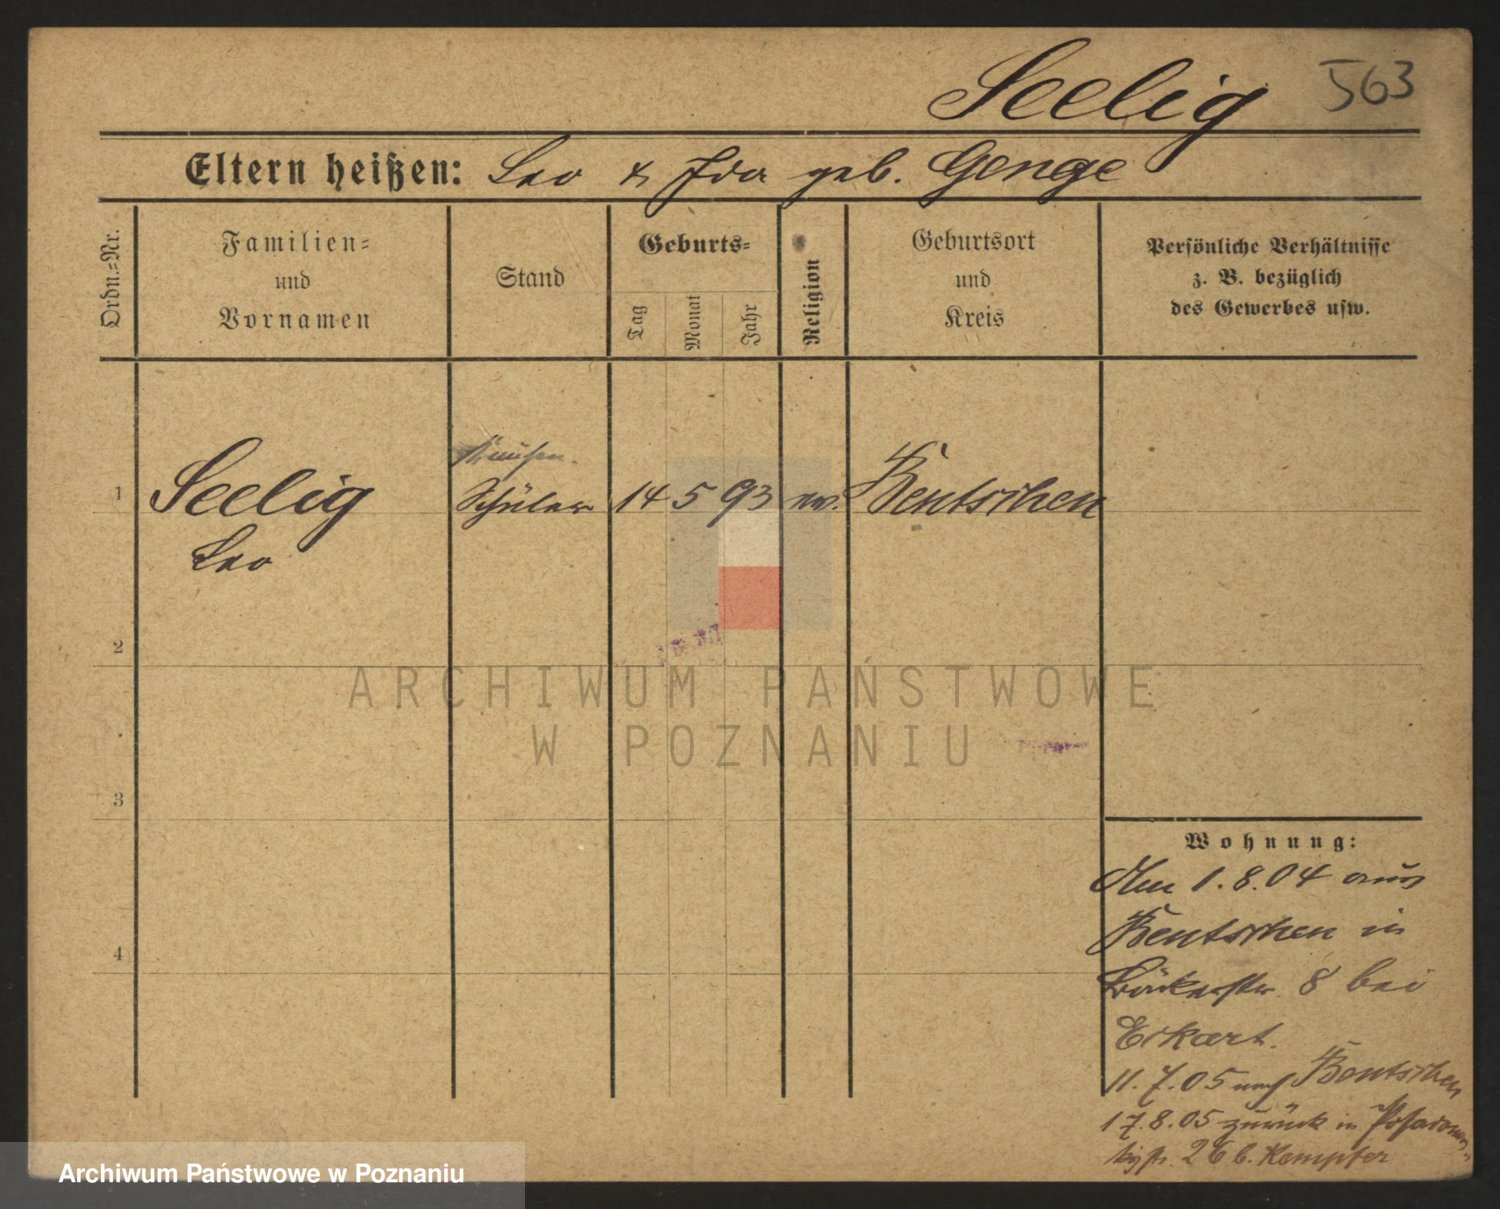 Seelig 563
Eltern heißen: Leo & Ida geb. Genge
Ordn.=Nr.
Familien=
und
Vornamen
Stand
Geburts=
Tag
Monat
Jahr
Religion
Geburtsort
und
Kreis
Persönliche Verhältnisse
z. B. bezüglich
des Gewerbes usw.
1 Seelig Schüler 14 5 93 ev. Bentschen
Leo
2
3
4
Wohnung:
Am 1.8.04 aus
Bentschen in
Bäckerstr. 8 bei
Erkart.
11.7.05 nach Bentschen
17.8.05 zurück in
26 b. Kempfer
ARCHIWUM PAŃSTWOWE
W POZNANIU
Archiwum Państwowe w Poznaniu